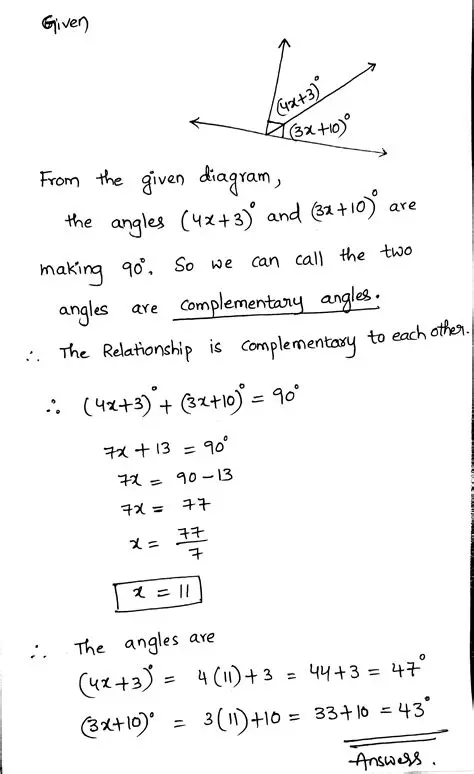 Given
(4x+3)°
(3x+10)°
From the given diagram,
the angles (4x+3)° and (3x+10)° are
making 90°. So we can call the two
angles are complementary angles.
∴ The Relationship is complementary to each other.
∴ (4x+3)° + (3x+10)° = 90°
7x + 13 = 90°
7x = 90 - 13
7x = 77
x = 77/7
x = 11
∴ The angles are
(4x+3)° = 4(11)+3 = 44+3 = 47°
(3x+10)° = 3(11)+10 = 33+10 = 43°
Answers.